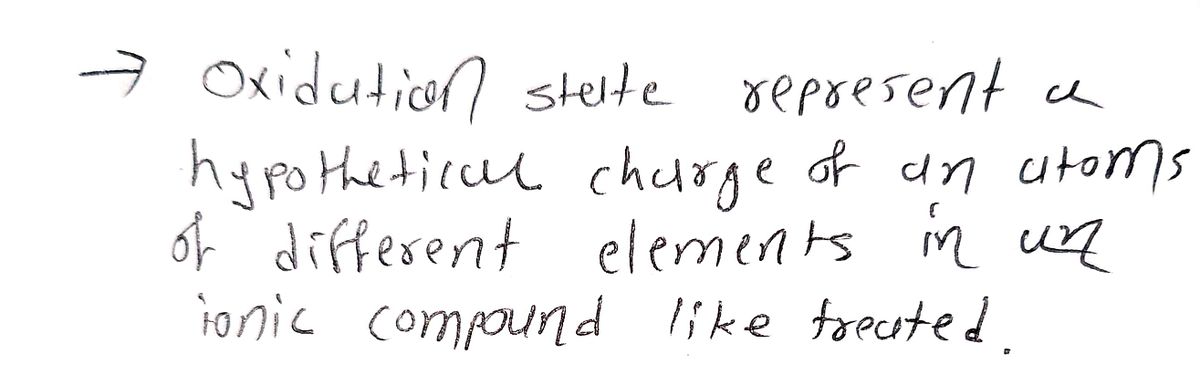 → Oxidation state represent a
hypothetical charge of an atoms
of different elements in an
ionic compound like treated.